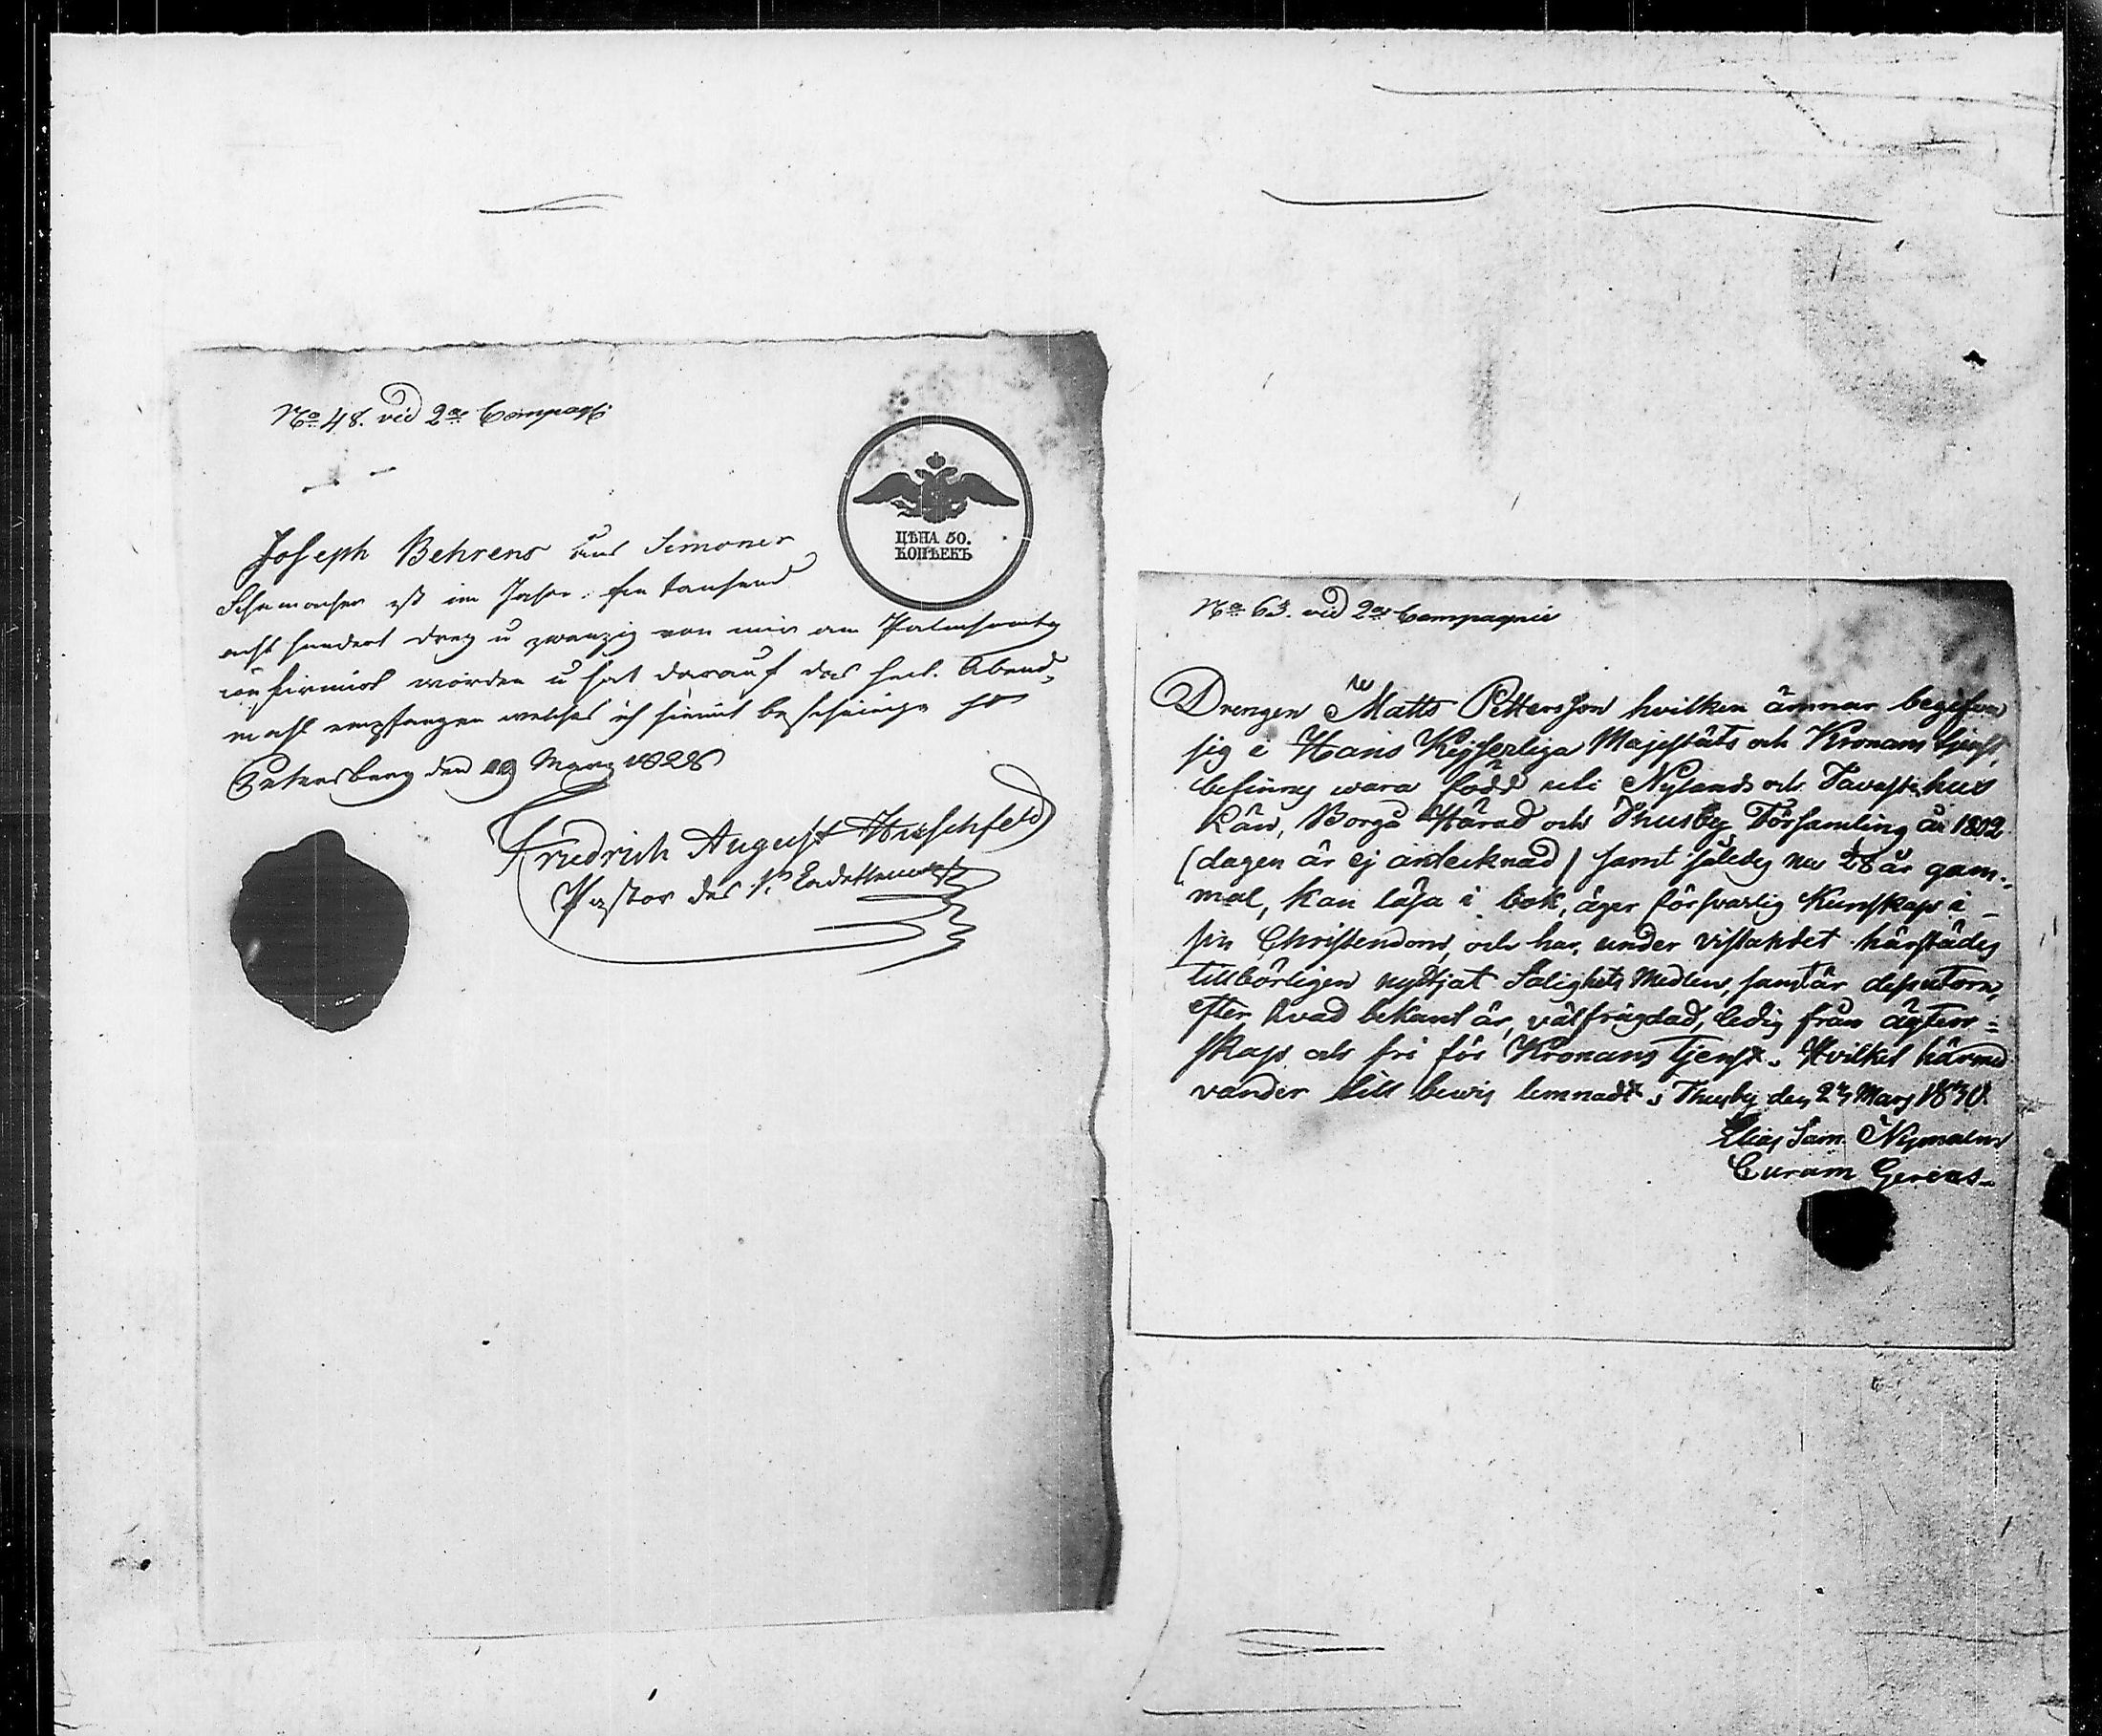 No 48. vid 2a Compagn
ЦѢНА 50.
КОПѢЕКЪ
Joseph Behrens aus
ist im Jahre: Ein tausend
acht hundert drey u zwanzig von mir am Palmsontag
confirmirt worden u hat darauf das heil. Abend-
mahl empfangen welches ich hiemit bescheinige St
Petersburg den 29 März 1828
Friedrich August Hirschfeld
Pastor des 1n Cadettencorps
No 63. vid 2a Compagnie
Drengen Matts Pettersson hvilken ämnar begifva
sig i Hans Kejserliga Majestäts och Kronans tjenst,
befinnes wara född uti Nylands och Tavastehus
Län, Borgå Härad och Thusby Församling år 1802
(dagen är ej antecknad) samt således nu 28 år gam-
mal, kan läsa i bok, äger försvarlig Kunskap i
sin Christendom, och har, under vistandet härstädes
tillbörligen nyttjat Salighets Medlen, samt är dessutom,
efter hvad bekant är, välfrägdad, ledig från ägten=
skap och fri för Kronans tjenst. Hvilket härmed
varder till bewis lemnadt. Thusby den 23 Mars 1830.
Elias Sam. Nymalm
Curam Gerens.